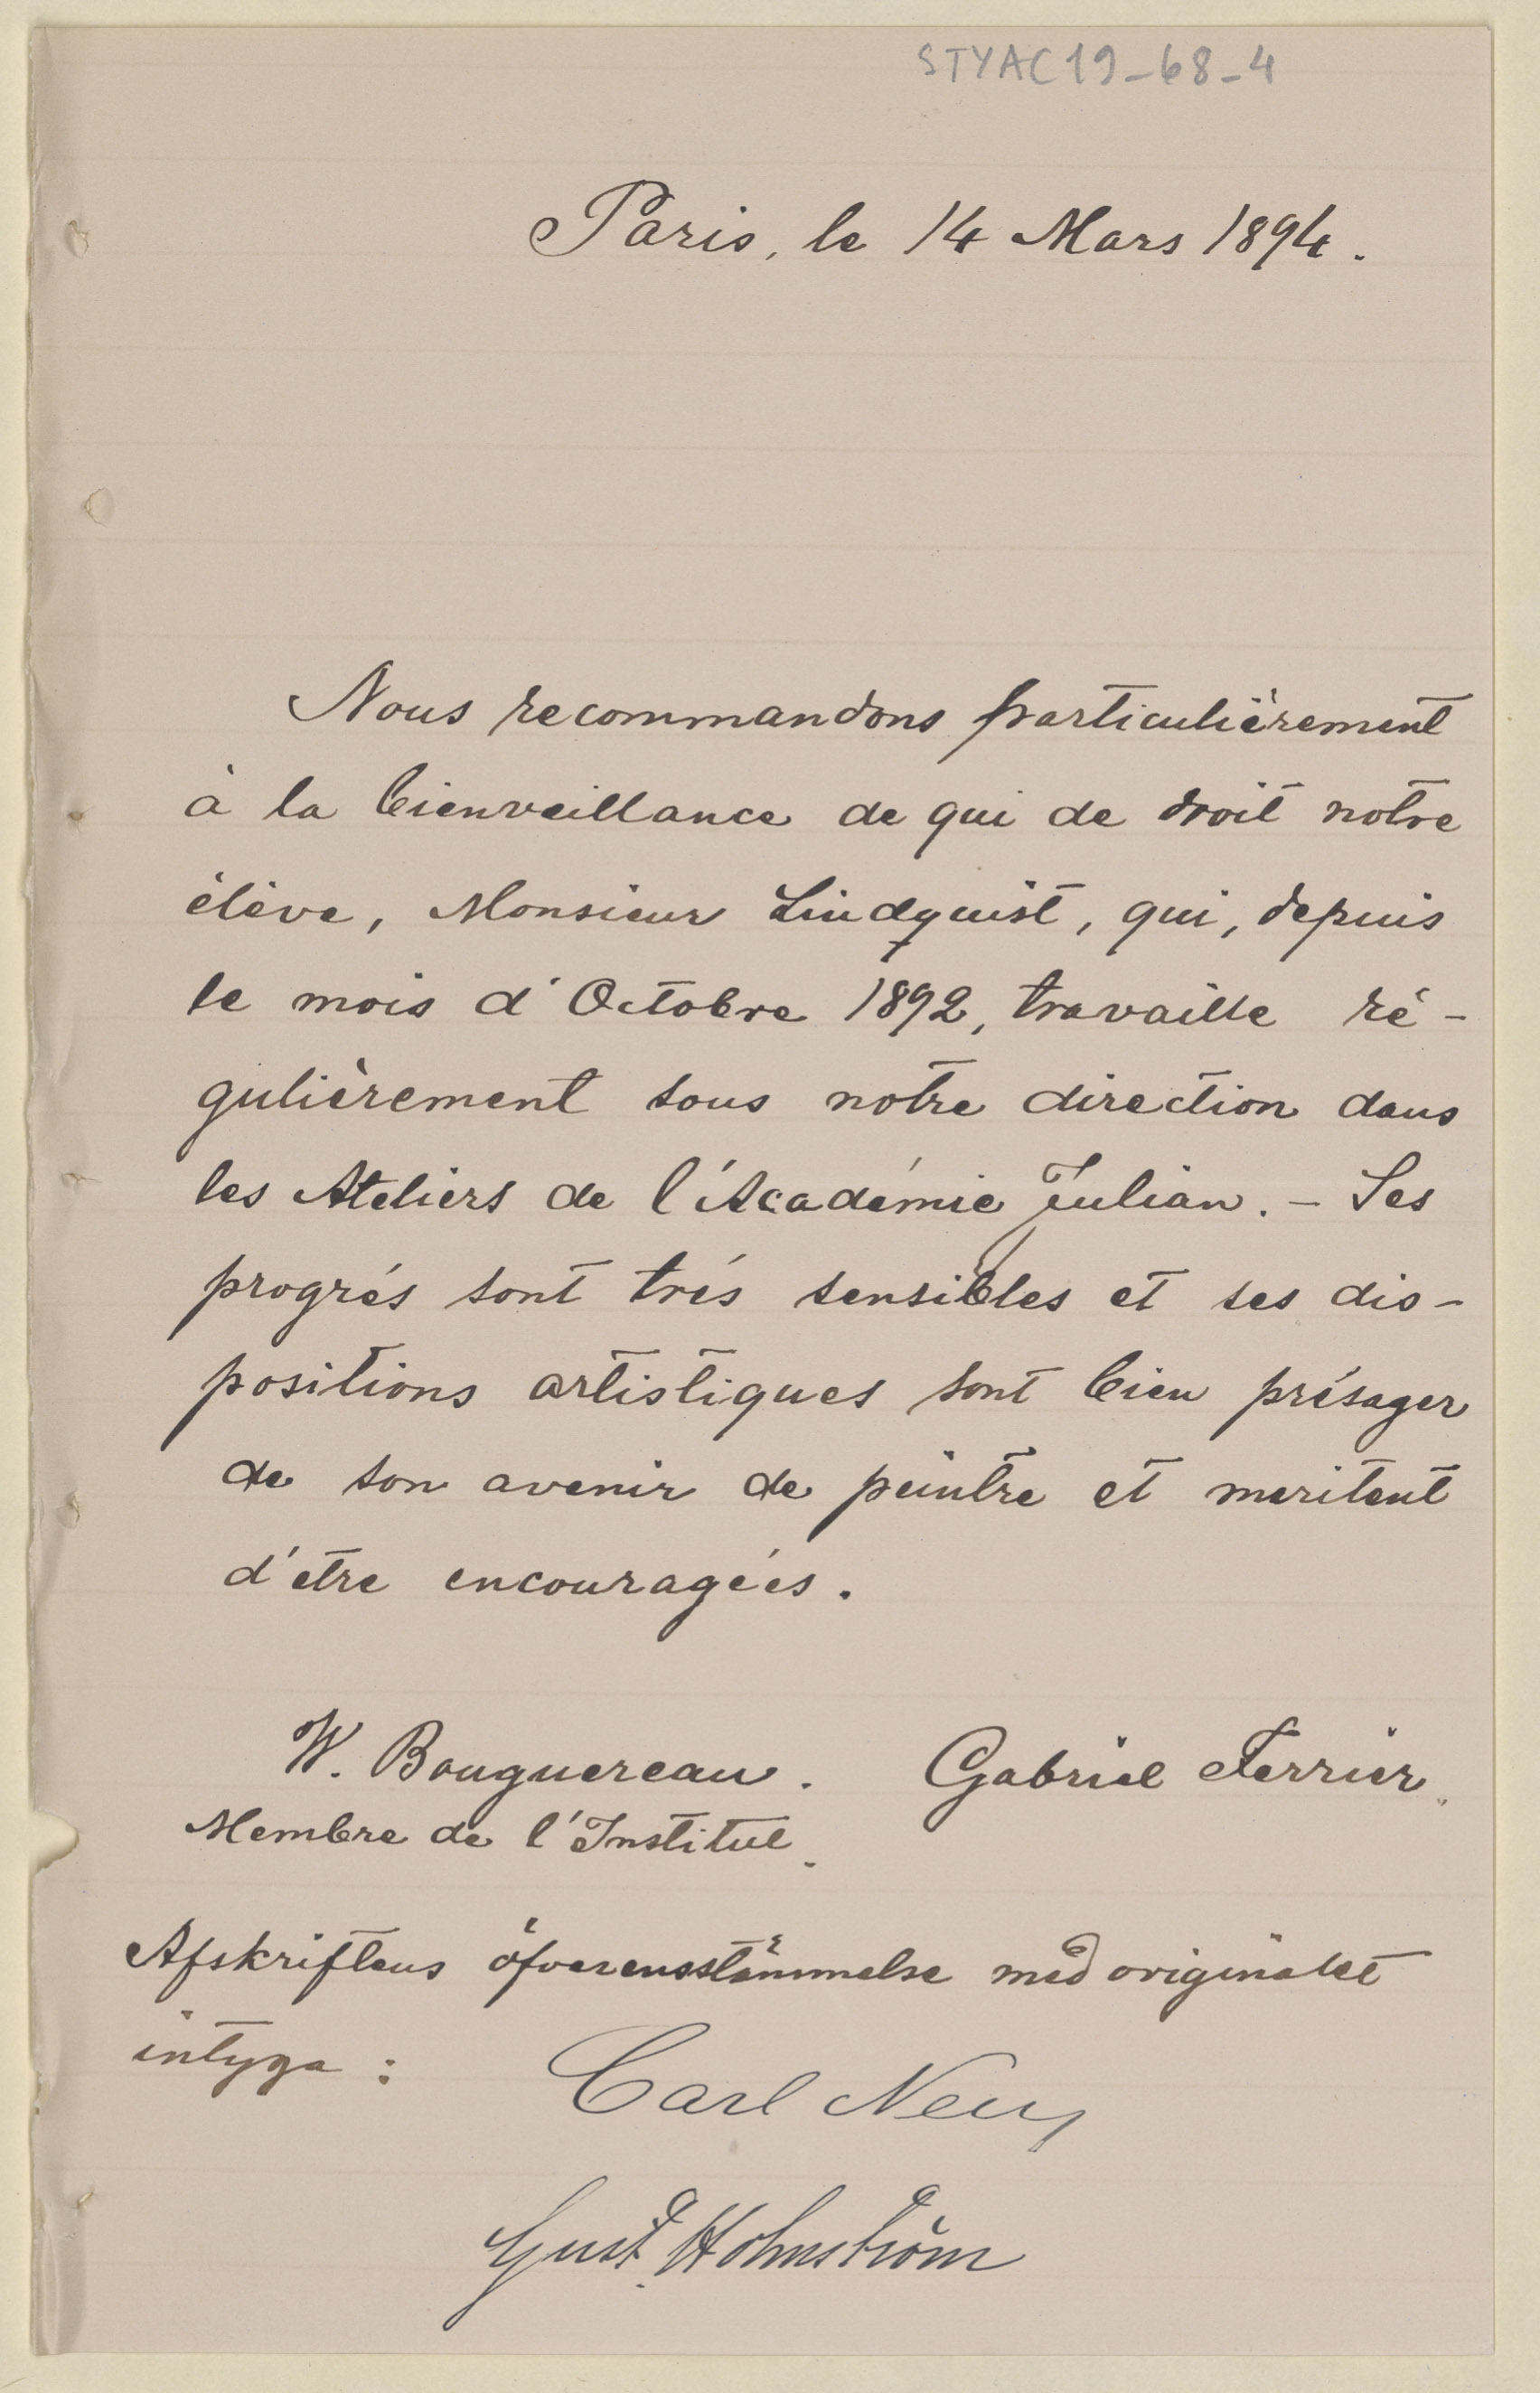 STYAC19-68-4
Paris, le 14 Mars 1894.
Nous recommandons particulièrement
à la bienveillance de qui de droit notre
élève, Monsieur Lindquist, qui, depuis
le mois d'Octobre 1892, travaille ré-
gulièrement sous notre direction dans
les Ateliers de l'Académie Julian. - Ses
progrés sont trés sensibles et ses dis-
positions artistiques sont bien présager
de son avenir de peintre et meritent
d'etre encouragées.
W. Bouguereau. Gabriel Ferrier.
Membre de l'Institut.
Afskriftens öfverensstämmelse med originalet
intyga:
Carl
Gust. Holmström